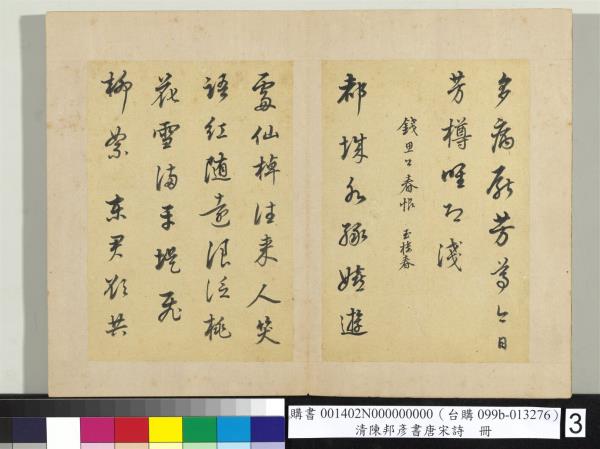 多病厭芳尊今日
芳樽唯恐淺
錢思公春恨 玉樓春
都城水綠嬉遊
處仙棹往來人笑
語紅隨遠浪泛桃
花雪滿平堤飛
柳絮東君欲共
購書 001402N000000000（台購 099b-013276）
清陳邦彥書唐宋詩 冊
3